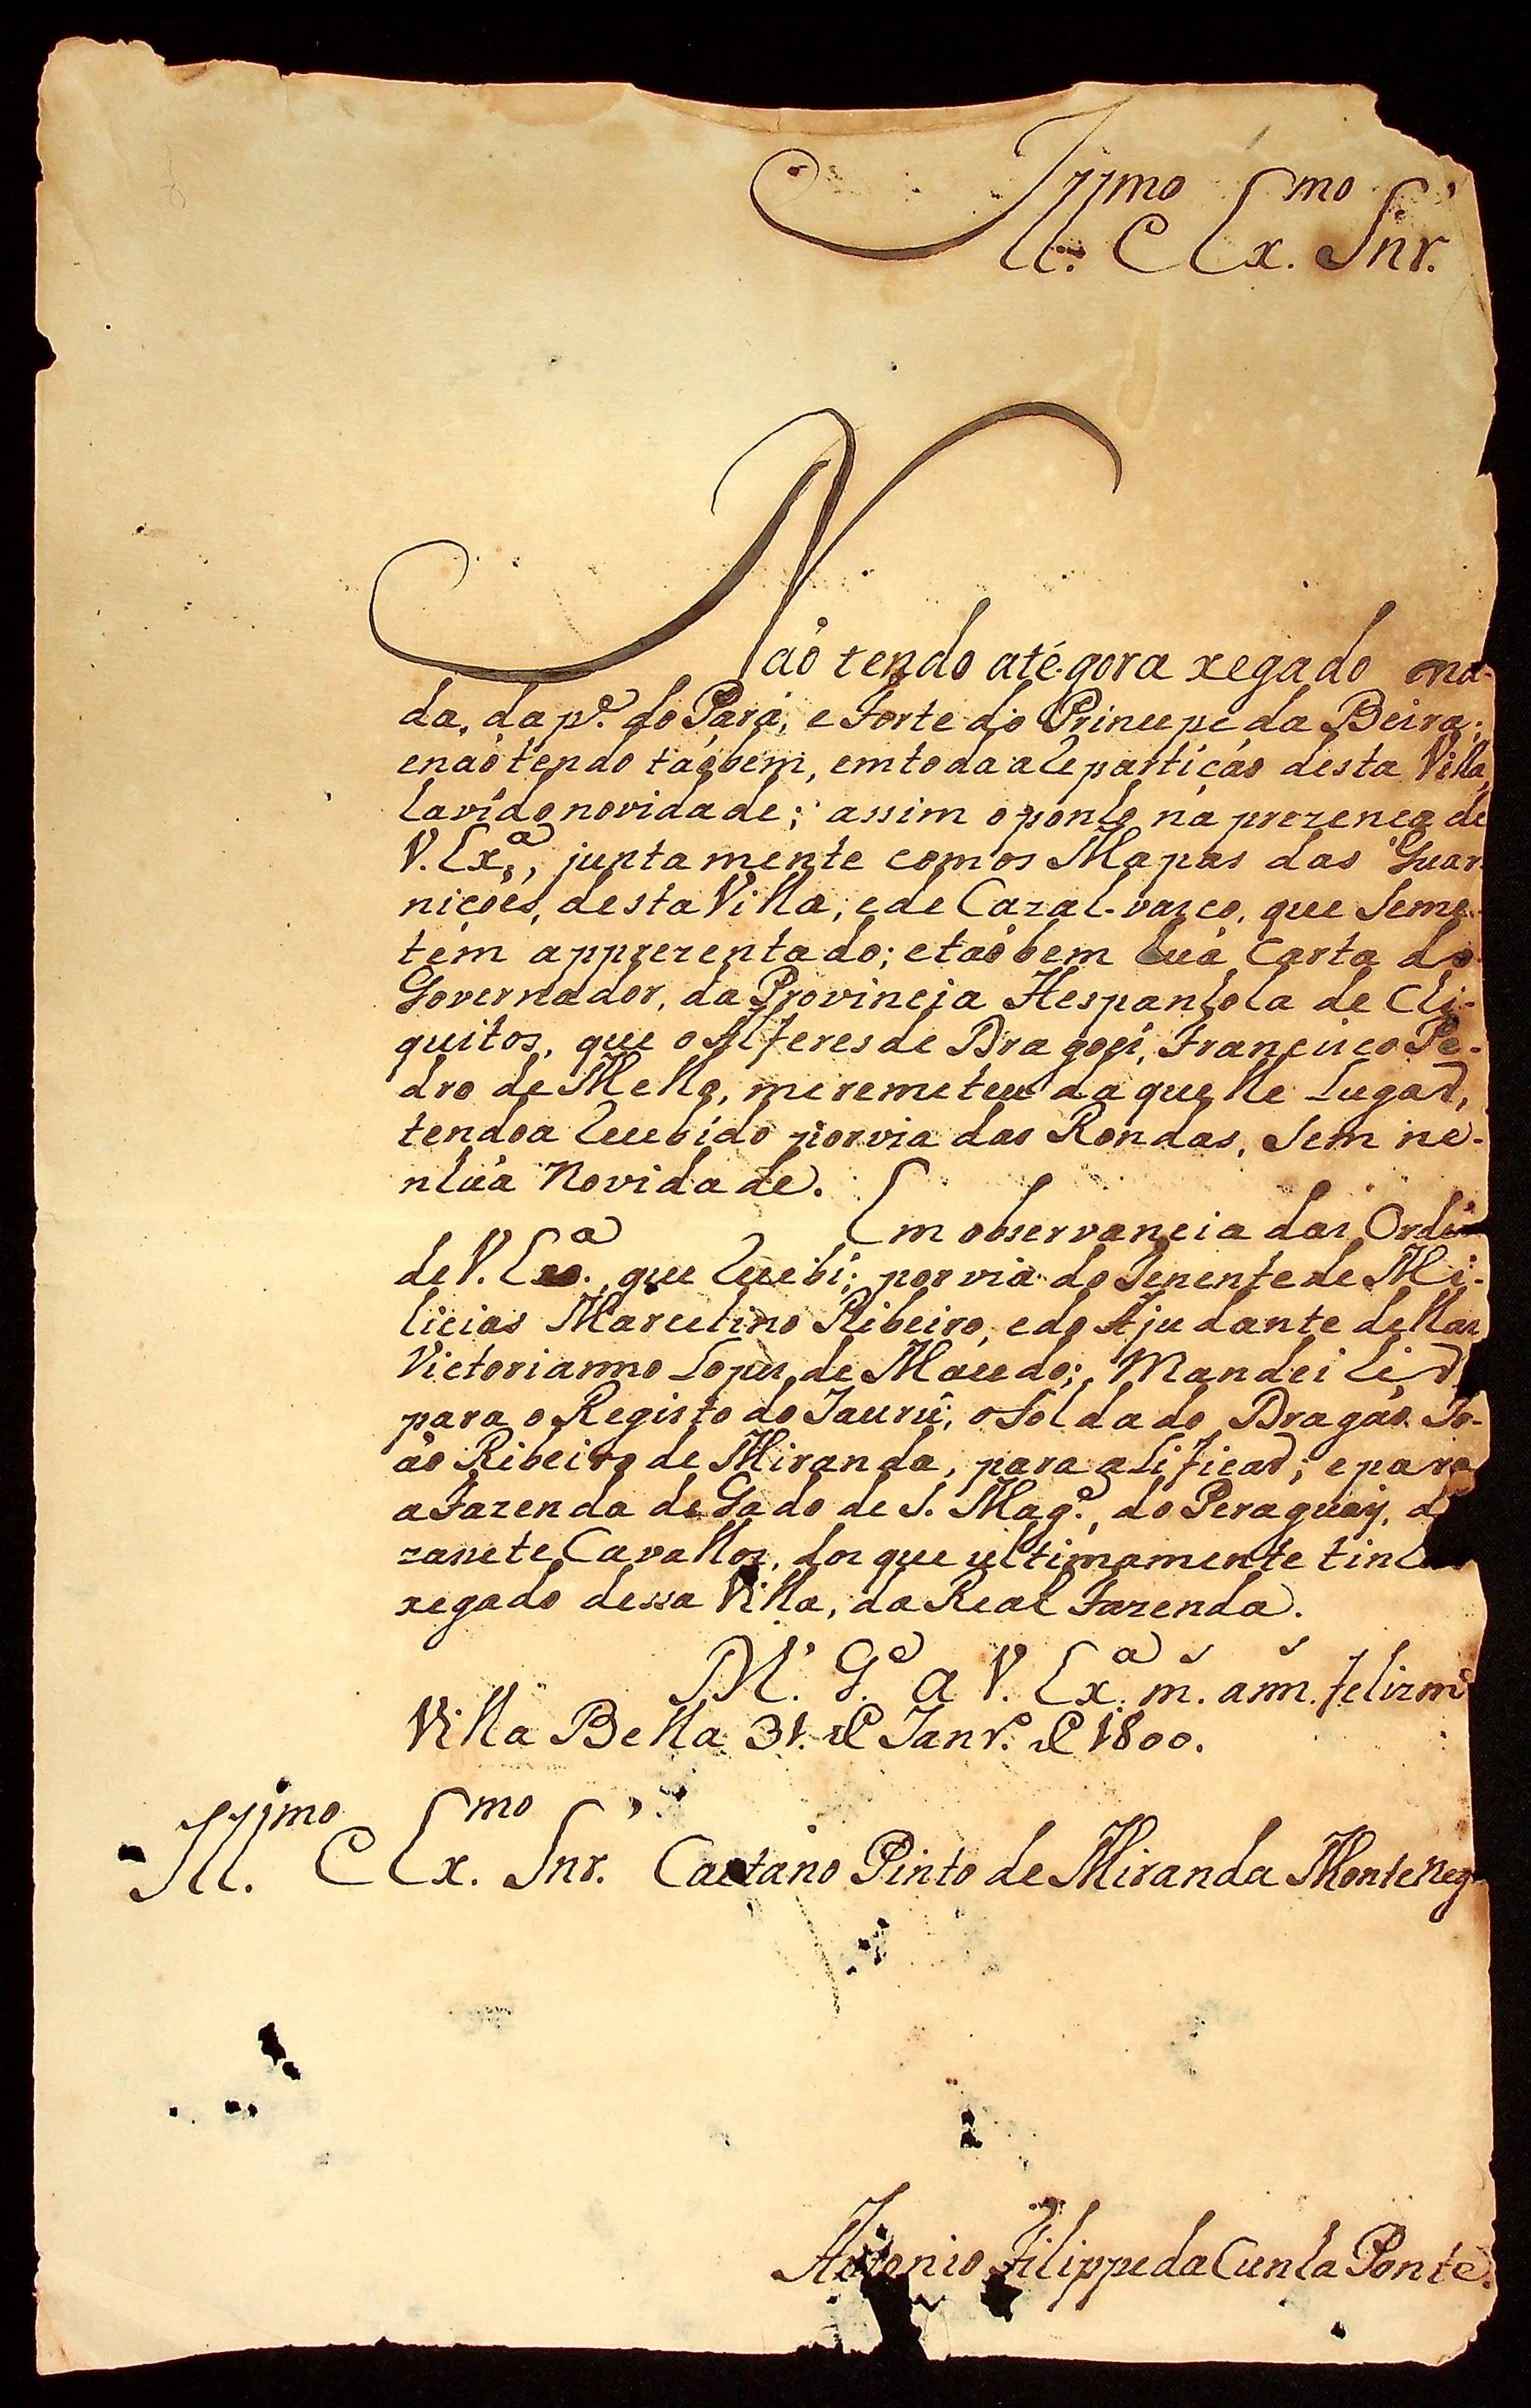 Ill.mo e Ex.mo Snr.
Não tendo até-gora xegado na-
da, da p.e do Pará, e Forte do Principe da Beira;
enaõ tendo taõbem, emtoda a Repartiçáo desta Villa,
havido novidade; assim o ponho na prezença de
V. Ex.a, juntamente comos Mapas das Guar
niçoẽs, desta Villa, ede Cazal-vasco, que Seme-
tem apprezentado; etaõbem huã Carta do
Governador, da Provincia Hespanhola de Chi-
quitos, que o Alferes de Dragoẽs, Francisco Pe-
dro de Mello, meremeteu daquelle Lugar,
tendoa Recebido porvia das Rondas, Sem ne-
nhuã Novidade.
Em observancia das Orde
de V. Ex.a, que Recebi; por via do Tenente de Mi-
licias Marcelino Ribeiro, edo Ajudante dellas
Victorianno Lopes de Macedo; Mandei hir,
para o Registo do Jaurú; o Soldado Dragáo Jo-
ão Ribeiro de Miranda, para ahi ficar; epara
aFazenda de Gado de S. Mag.e, do Peraguay, d
zasete Cavallos, dos que ultimamente tinh
xegado dessa Villa, da Real Fazenda.
D.s G.e a V. Ex.a m.s ann.s felizm.e
Villa Bella 31. de Janr.o de 1800.
Ill.mo e Ex.mo Snr. Caetano Pinto de Miranda Monteneg
Antonio Filippe da Cunha Ponte.